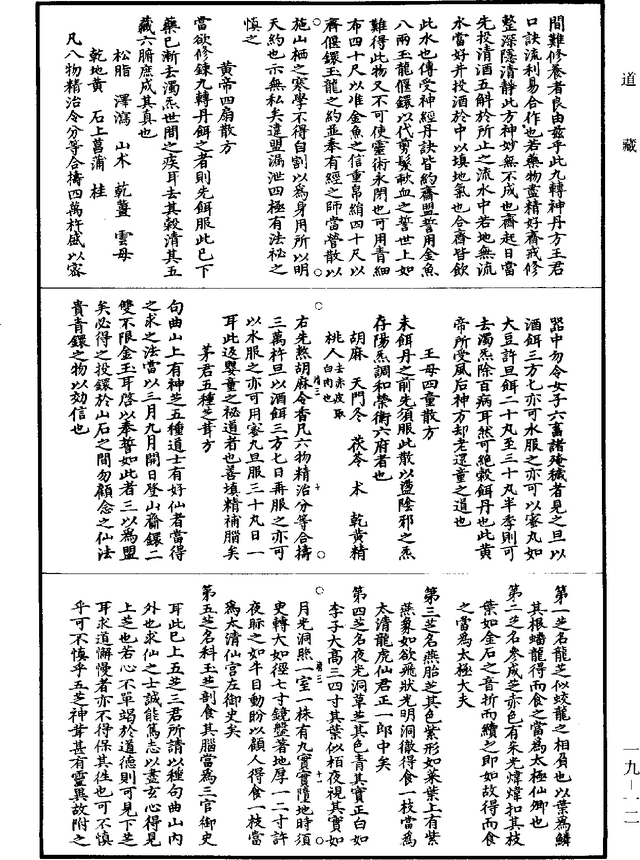 道藏
間難修養者良由茲乎此九轉神丹方王君
口訣流利易合作也若藥物盡精好齋戒修
整深隱清靜此方神妙無不成也齋起日當
先投清酒五斛於所止之流水中若地無流
水當好井投酒於中以填地氣也合齋皆飲
此水也傳受神經丹訣皆約齋盟誓用金魚
八兩玉龍偃鐶以代剪髮歃血之誓世上如
難得此物又不可使靈術永閉也可用青細
布四十尺以准金魚之信重帛絹四十尺以
齊偃鐶玉龍之約並奉有經之師當營散以
施山栖之寒學不得自割以為身用所以明
天約也示無私矣違盟漏泄四極有法祕之
慎之
黃帝四扇散方
當欲修鍊九轉丹餌之者則先餌服此已下
藥已漸去濁炁世間之疾耳去其穀清其五
藏六腑庶成其真也
松脂 澤瀉 山朮 乾薑 雲母
乾地黃 石上菖蒲 桂
凡八物精治令分等合擣四萬杵盛以密
器中勿令女子六畜諸淹穢者見之旦以
酒餌三方匕亦可水服之亦可以蜜丸如
大豆許旦餌二十丸至三十丸半李則可
去濁炁除百病耳然可絕穀餌丹也此黃
帝所受風后神方却老還童之道也
王母四童散方
未餌丹之前先須服此散以盪陰邪之炁
存陽炁調和榮衛六府者也
胡麻 天門冬 茯苓 朮 乾黃精
桃人去赤皮取白肉也
右先熬胡麻令香凡六物精治分等合擣
三萬杵旦以酒餌三方七日再服之亦可
以水服之亦可用蜜丸旦服三十丸日一
耳此返嬰童之祕道者也善填精補腦矣
茅君五種芝茸方
句曲山上有神芝五種道士有好仙者當得
之求之法當以三月九月開日登山齎鐶二
雙不限金玉耳啓以奉誓如此者三以為盟
矣必得之投鐶於山石之間勿顧念之仙法
貴青鐶之物以効信也
第一芝名龍芝似蛟龍之相負也以葉為鱗
其根蟠龍得而食之當為太極仙卿也
第二芝名參成芝赤色有朱光煒煒扣其枝
葉如金石之音折而續之即如故得而食
之當為太極大夫
第三芝名燕胎芝其色紫形如葵葉上有紫
燕象如欲飛狀光明洞徹得食一枝當為
太清龍虎仙君正一郎中矣
第四芝名夜光洞草芝其色青其實正白如
李子大高三四寸其葉似栢夜視其實如
月光洞照一室一株有九實實墮地時須
史轉大如徑七寸鏡盤著地厚一二寸許
夜眎之如牛目動盼以顧人得食一枝當
為太清仙官左御史矣
第五芝名科玉芝剖食其腦當為三官御史
耳此已上五芝三君所請以種句曲山內
外也求仙之士誠能篤志以盡玄心得見
上芝也若心不單竭於道德則可見下芝
耳求道懈慢者亦不得保其往也可不慎
乎可不慎乎五芝神茸甚有靈異故附之